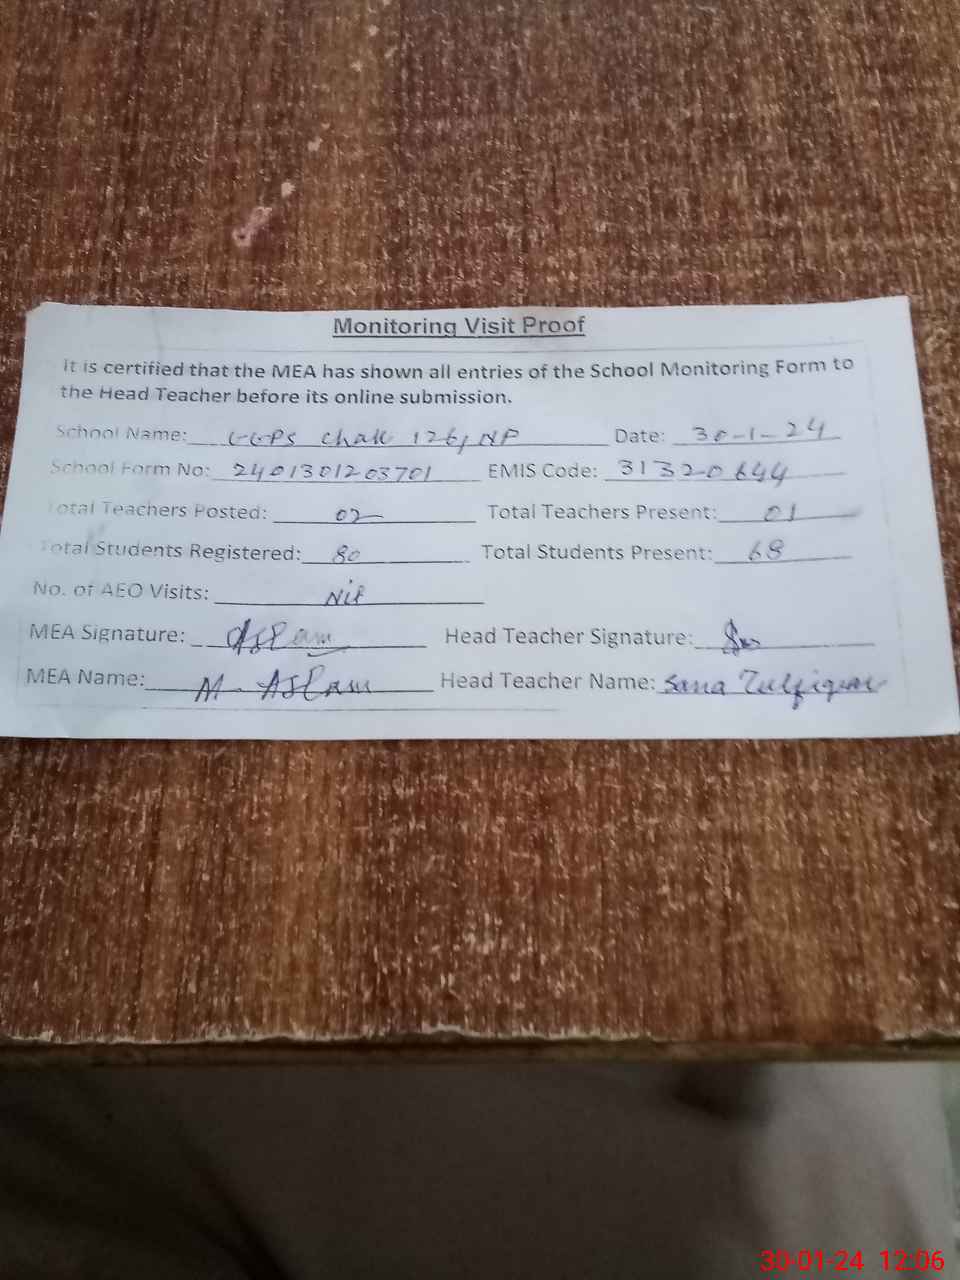 Monitoring Visit Proof
It is certified that the MEA has shown all entries of the School Monitoring Form to
the Head Teacher before its online submission.
School Name: GGPS Chak 126/NP Date: 30-1-24
School Form No: 2401301203701 EMIS Code: 31320644
Total Teachers Posted: 02 Total Teachers Present: 01
Total Students Registered: 80 Total Students Present: 68
No. of AEO Visits: Nil
MEA Signature: Aslam Head Teacher Signature:
MEA Name: M. Aslam Head Teacher Name: Sana Zulfiqar
30-01-24 12:06